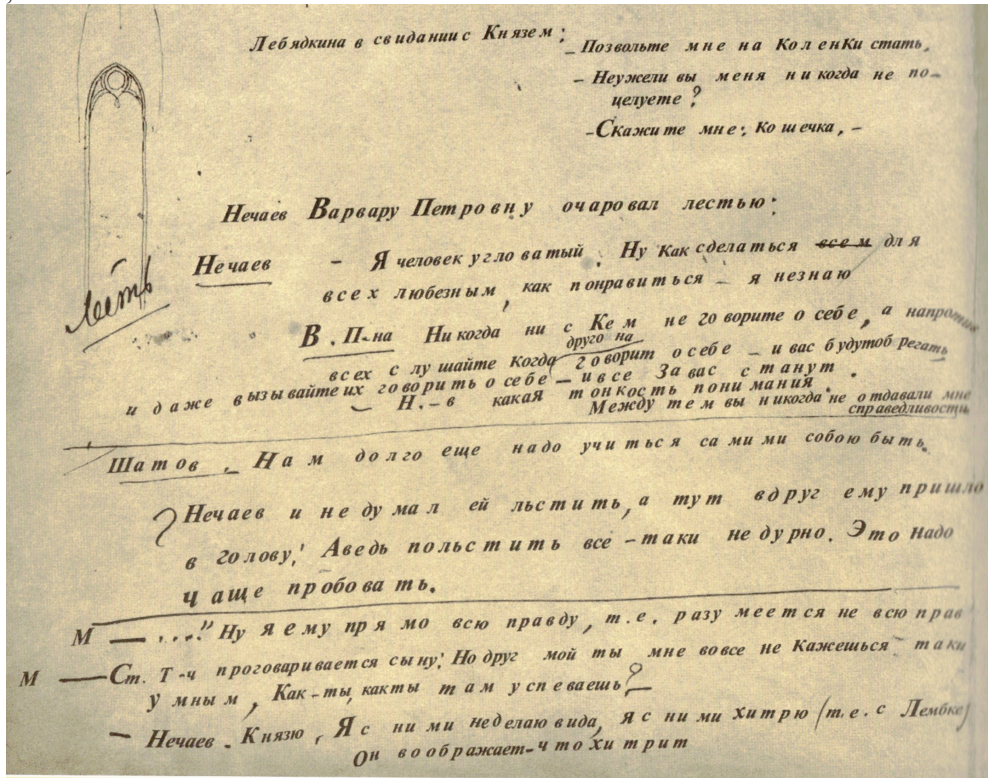 Лебядкина в свидании с Князем:
– Позвольте мне на Коленки стать,
– Неужели вы меня никогда не по–
целуете?
– Скажите мне: Кошечка, –
Нечаев Варвару Петровну очаровал лестью:
Нечаев – Я человек угловатый. Ну Как сделаться всем для
всех любезным, как понравиться – я незнаю
Лесть
В. П-на Никогда ни с Кем не говорите о себе, а напротив
друго на
всех слушайте Когда говорит о себе – и вас будут обрегать
и даже вызывайте их говорить о себе – и все За вас станут.
– Н.–в какая тонкость понимания.
Между тем вы никогда не отдавали мне
справедливость
Шатов. Нам долго еще надо учиться самими собою быть.
Нечаев и не думал ей льстить, а тут вдруг ему пришло
в голову: Аведь польстить все–таки недурно. Это надо
чаще пробовать.
М — ...." Ну Я ему прямо всю правду, т.е. разумеется не всю прав
М — Ст. Т-ч проговаривается сыну: Но друг мой ты мне вовсе не Кажешься таки
умным, Как–ты, какты там успеваешь? –
– Нечаев. Князю, Я с ними неделаю вида, я с ними хитрю (т.е. с Лембке)
Он воображает–что хитрит